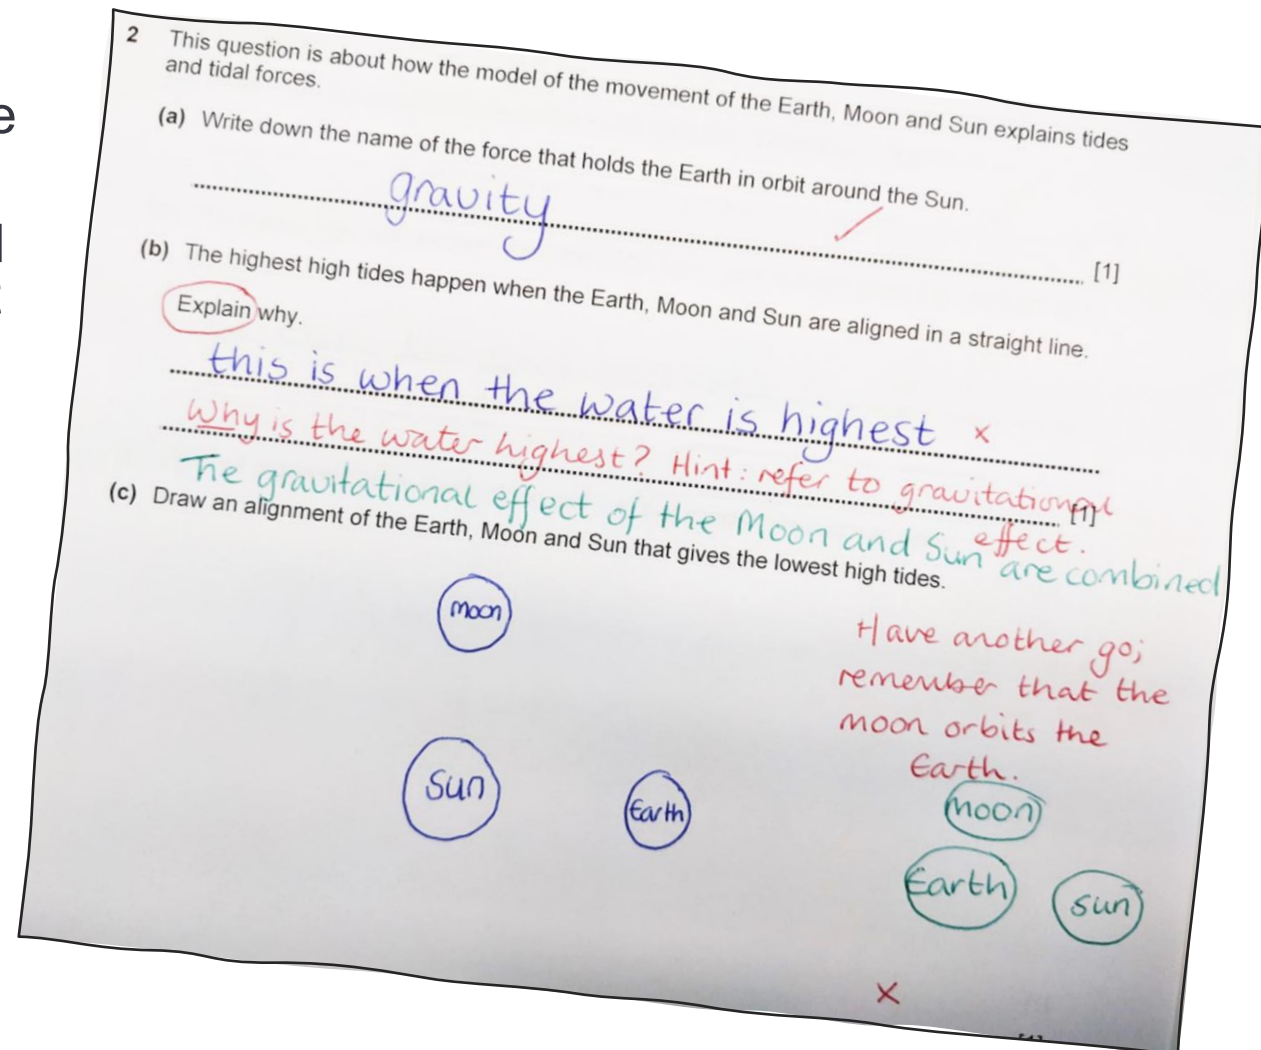 e
2 This question is about how the model of the movement of the Earth, Moon and Sun explains tides
and tidal forces.
(a) Write down the name of the force that holds the Earth in orbit around the Sun.
gravity
[1]
(b) The highest high tides happen when the Earth, Moon and Sun are aligned in a straight line.
Explain why.
this is when the water is highest x
Why is the water highest? Hint: refer to gravitational
effect.
[1]
The gravitational effect of the Moon and Sun are combined
(c) Draw an alignment of the Earth, Moon and Sun that gives the lowest high tides.
moon
Sun
Earth
Have another go;
remember that the
moon orbits the
Earth.
moon
Earth
sun
x